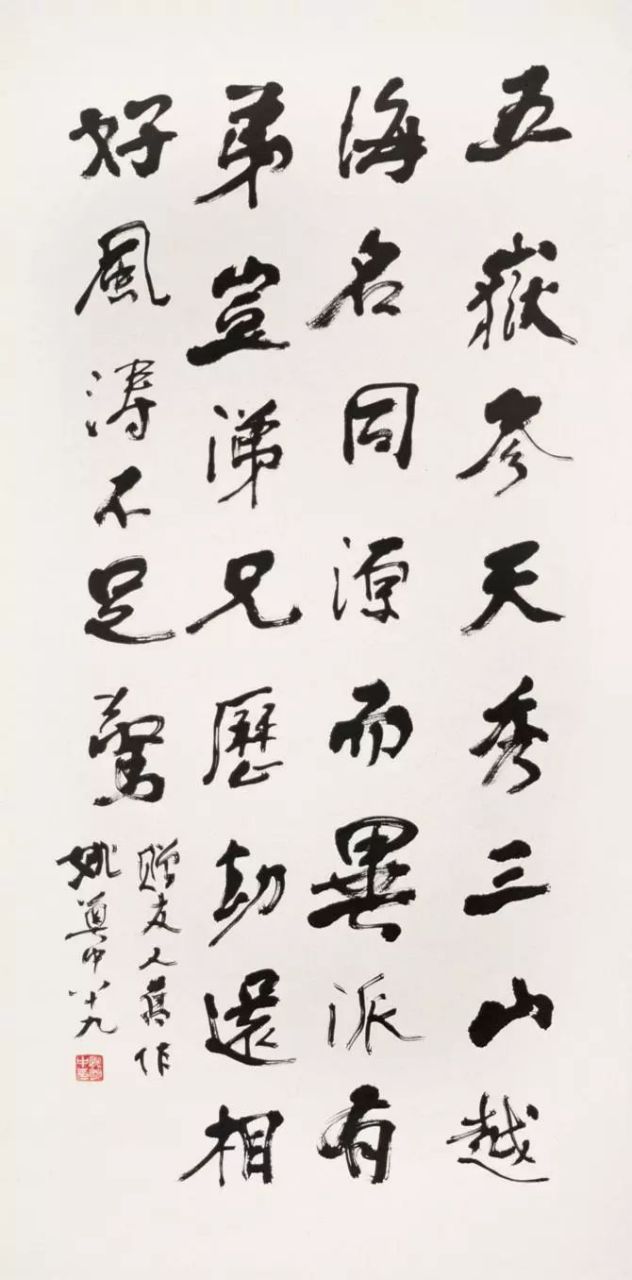 五嶽參天秀三山越
海名同源而異派有
弟豈涕兄歷劫還相
好風濤不足驚
贈友人舊作
姚奠中八十九